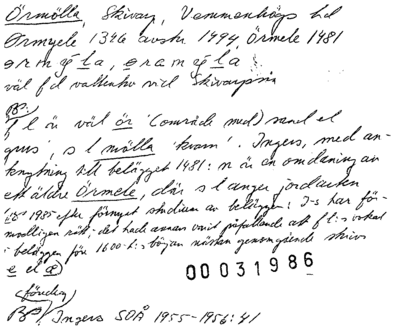 Örmölla, Skivarp, Vemmenhögs hd
Ormyele 1346 avskr 1494, Örmele 1481
väl f d vattenkv vid Skivarpsån
F l är väl ör (område med) sand el
grus', s l mölla 'kvarn'. Ingers, med an-
knytning till belägget 1481: n är en omdaning av
ett äldre Örmele, där s l anger jordarten
1985 efter förnyat studium av beläggen: I-s har för-
modligen rätt; det hade annars varit påfallande att f l:s vokal
i beläggen för 1600-t:s början nästan genomgående skrivs
e el æ
00031986
(föreg)
Ingers SOÅ 1955-1956:41